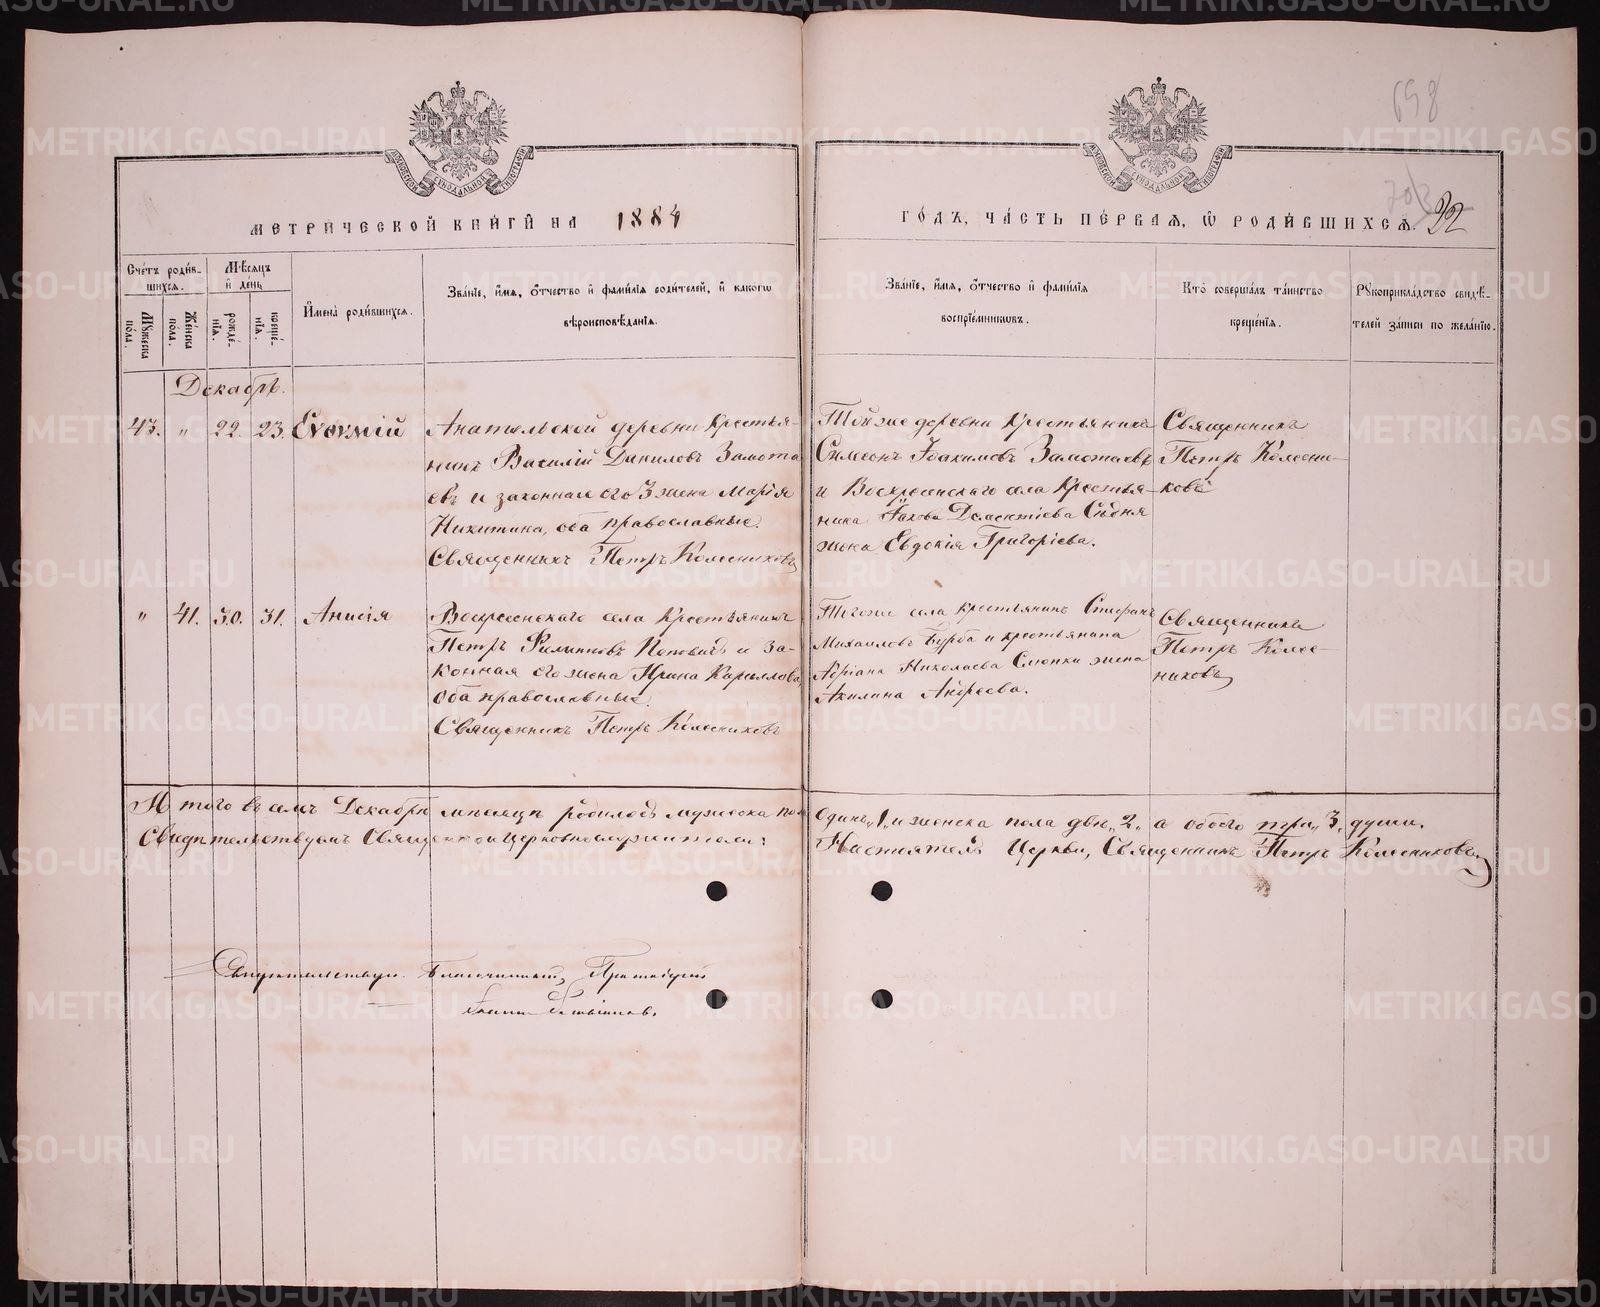 698
703
22
МОСКОВСКОЙ СѴНОДАЛЬНОЙ ТИПОГРАФІИ
МЕТРИЧЕСКОЙ КНИГИ НА 1884
ГОДЪ, ЧАСТЬ ПЕРВАЯ, Ѡ РОДИВШИХСЯ.
Счетъ родившихся.
Мужеска пола.
Женска пола.
Мѣсяцъ и день
рожденія.
крещенія.
Имена родившихся.
Званіе, имя, отчество и фамилія родителей, и какогѡ
вѣроисповѣданія.
Званіе, имя, отчество и фамилія
воспріемниковъ.
Кто совершалъ таинство
крещенія.
Рукоприкладство свидѣтелей
записи по желанію.
Декабрь.
43. " 22. 23. Евѳимій
Анатольской деревни крестья-
нинъ Василій Даниловъ Замота
евъ и законная его 3 жена Марія
Никитина, оба православные.
Священникъ Петръ Колесниковъ
Той же деревни крестьянинъ
Симеонъ Іоакимовъ Замотаевъ
и Воскресенскаго села крестья-
нина Іакова Дементіева
жена Евдокія Григоріева.
Священникъ
Петръ Колесни-
ковъ
" 41. 30. 31. Анисія
Воскресенскаго села крестьянинъ
Петръ Филиповъ Поповичъ и за-
конная его жена Ирина Кириллова
оба православные.
Священникъ Петръ Колесниковъ
Тогоже села крестьянинъ Стефанъ
Михаиловъ Бурба и крестьянина
Адріана Николаева Слюпки жена
Акилина Андреева.
Священникъ
Петръ Колес-
никовъ
Итого въ семъ Декабрѣ мѣсяцѣ родилось мужеска пола
одинъ „1„ и женска пола двѣ „2„ а обоего три „3„ души.
Свидѣтельствуемъ
Настоятель Церкви, Священникъ Петръ Колесниковъ
Свидѣтельствую. Благочинный, Протоіерей
METRIKI.GASO-URAL.RU